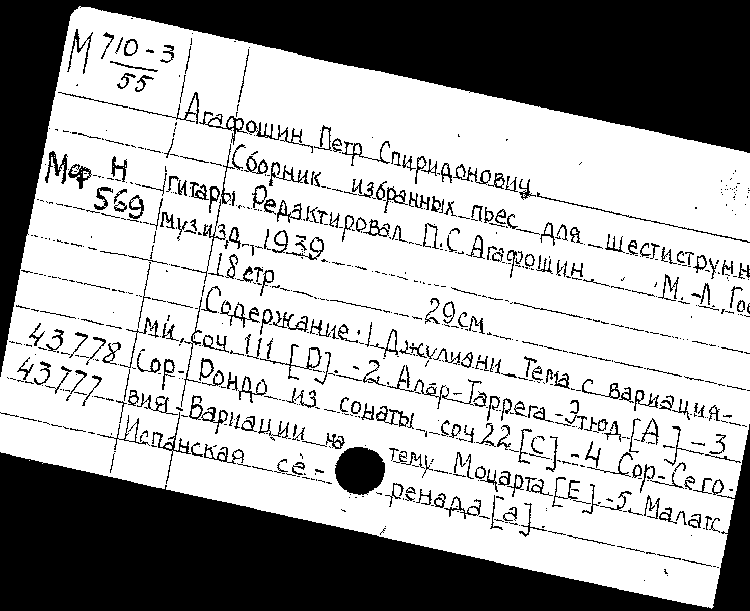 М 710-3
55
Агафошин, Петр Спиридонович.
Сборник избранных пьес для шестиструнн
Мор Н гитары. Редактировал П.С. Агафошин. М.-Л., Гос
569 муз.изд, 1939.
18 стр. 29см.
Содержание: 1. Джулиани_Тема с вариация-
43.778 ми, соч. 111 [D]. -2. Алар-Таррега-Этюд [A] -3.
43777 Сор-Рондо из сонаты, соч 22 [C] -4 Сор-Сего-
вия-Вариации на тему Моцарта [E]. -5. Малатс.
Испанская се-ренада [a].